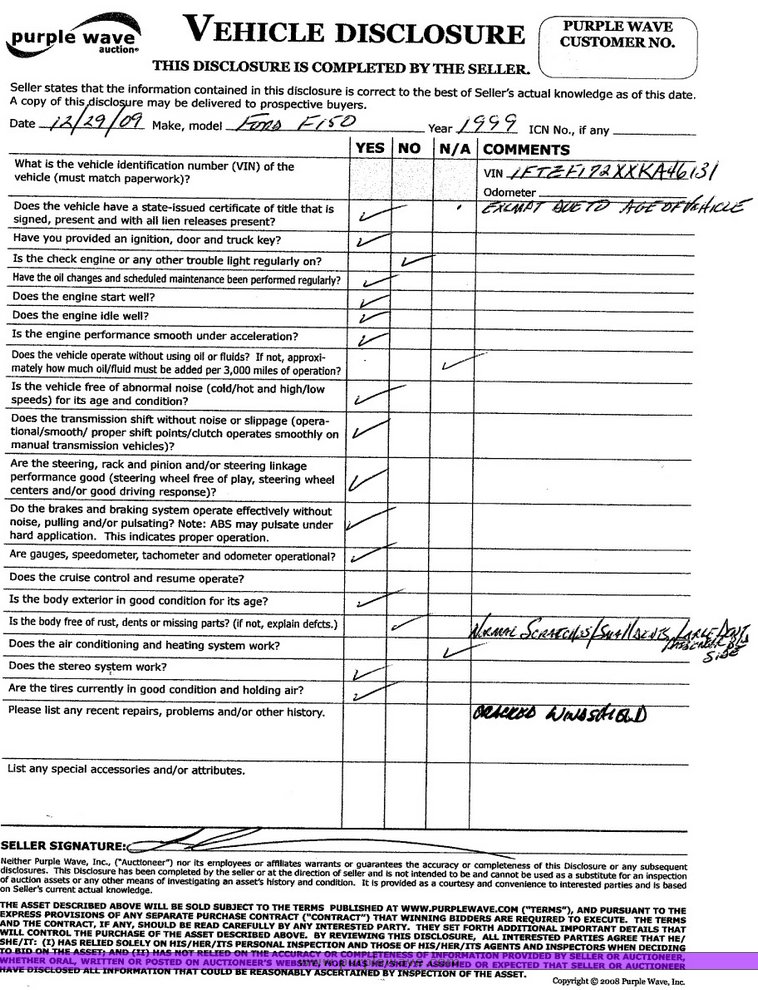 purple wave
auction®
VEHICLE DISCLOSURE
THIS DISCLOSURE IS COMPLETED BY THE SELLER.
PURPLE WAVE
CUSTOMER NO.
Seller states that the information contained in this disclosure is correct to the best of Seller's actual knowledge as of this date.
A copy of this disclosure may be delivered to prospective buyers.
Date 12/29/09 Make, model FORD F150 Year 1999 ICN No., if any
YES NO N/A COMMENTS
What is the vehicle identification number (VIN) of the
vehicle (must match paperwork)?
VIN 1FTZF172XXKA46131
Odometer
EXEMPT DUE TO AGE OF VEHICLE
Does the vehicle have a state-issued certificate of title that is
signed, present and with all lien releases present?
Have you provided an ignition, door and truck key?
Is the check engine or any other trouble light regularly on?
Have the oil changes and scheduled maintenance been performed regularly?
Does the engine start well?
Does the engine idle well?
Is the engine performance smooth under acceleration?
Does the vehicle operate without using oil or fluids? If not, approxi-
mately how much oil/fluid must be added per 3,000 miles of operation?
Is the vehicle free of abnormal noise (cold/hot and high/low
speeds) for its age and condition?
Does the transmission shift without noise or slippage (opera-
tional/smooth/ proper shift points/clutch operates smoothly on
manual transmission vehicles)?
Are the steering, rack and pinion and/or steering linkage
performance good (steering wheel free of play, steering wheel
centers and/or good driving response)?
Do the brakes and braking system operate effectively without
noise, pulling and/or pulsating? Note: ABS may pulsate under
hard application. This indicates proper operation.
Are gauges, speedometer, tachometer and odometer operational?
Does the cruise control and resume operate?
Is the body exterior in good condition for its age?
Is the body free of rust, dents or missing parts? (if not, explain defcts.)
NORMAL SCRATCHES/SMALL DENTS, LARGE DENT
PASSENGER
SIDE
Does the air conditioning and heating system work?
Does the stereo system work?
Are the tires currently in good condition and holding air?
Please list any recent repairs, problems and/or other history.
CRACKED WINDSHIELD
List any special accessories and/or attributes.
SELLER SIGNATURE:
Neither Purple Wave, Inc., ("Auctioneer") nor its employees or affiliates warrants or guarantees the accuracy or completeness of this Disclosure or any subsequent
disclosures. This Disclosure has been completed by the seller or at the direction of seller and is not intended to be and cannot be used as a substitute for an inspection
of auction assets or any other means of investigating an asset's history and condition. It is provided as a courtesy and convenience to interested parties and is based
on Seller's current actual knowledge.
THE ASSET DESCRIBED ABOVE WILL BE SOLD SUBJECT TO THE TERMS PUBLISHED AT WWW.PURPLEWAVE.COM ("TERMS"), AND PURSUANT TO THE
EXPRESS PROVISIONS OF ANY SEPARATE PURCHASE CONTRACT ("CONTRACT") THAT WINNING BIDDERS ARE REQUIRED TO EXECUTE. THE TERMS
AND THE CONTRACT, IF ANY, SHOULD BE READ CAREFULLY BY ANY INTERESTED PARTY. THEY SET FORTH ADDITIONAL IMPORTANT DETAILS THAT
WILL CONTROL THE PURCHASE OF THE ASSET DESCRIBED ABOVE. BY REVIEWING THIS DISCLOSURE, ALL INTERESTED PARTIES AGREE THAT HE/
SHE/IT: (I) HAS RELIED SOLELY ON HIS/HER/ITS PERSONAL INSPECTION AND THOSE OF HIS/HER/ITS AGENTS AND INSPECTORS WHEN DECIDING
TO BID ON THE ASSET; AND (II) HAS NOT RELIED ON THE ACCURACY OR COMPLETENESS OF INFORMATION PROVIDED BY SELLER OR AUCTIONEER,
WHETHER ORAL, WRITTEN OR POSTED ON AUCTIONEER'S WEBSITE, NOR HAS HE/SHE/IT ASSUMED OR EXPECTED THAT SELLER OR AUCTIONEER
HAVE DISCLOSED ALL INFORMATION THAT COULD BE REASONABLY ASCERTAINED BY INSPECTION OF THE ASSET.
Copyright © 2008 Purple Wave, Inc.